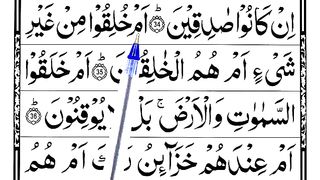 اِنْ كَانُوْا صٰدِقِيْنَ ؕ﴿34﴾ اَمْ خُلِقُوْا مِنْ غَيْرِ
شَيْءٍ اَمْ هُمُ الْخٰلِقُوْنَ ؕ﴿35﴾ اَمْ خَلَقُوا
السَّمٰوٰتِ وَالْاَرْضَ ۚ بَلْ يُوْقِنُوْنَ ؕ﴿36﴾
اَمْ عِنْدَهُمْ خَزَآئِنُ اَمْ هُمُ